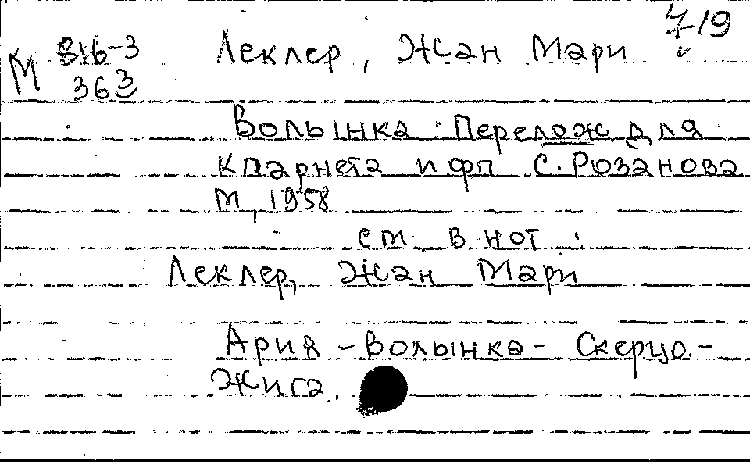 М 816-3
363
Леклер, Жан Мари
7-19
Волынка. Перелож для
кларнета и фп С. Розанова
М, 1958
см в нот:
Леклер, Жан Мари
Ария - Волынка - Скерцо -
Жига.